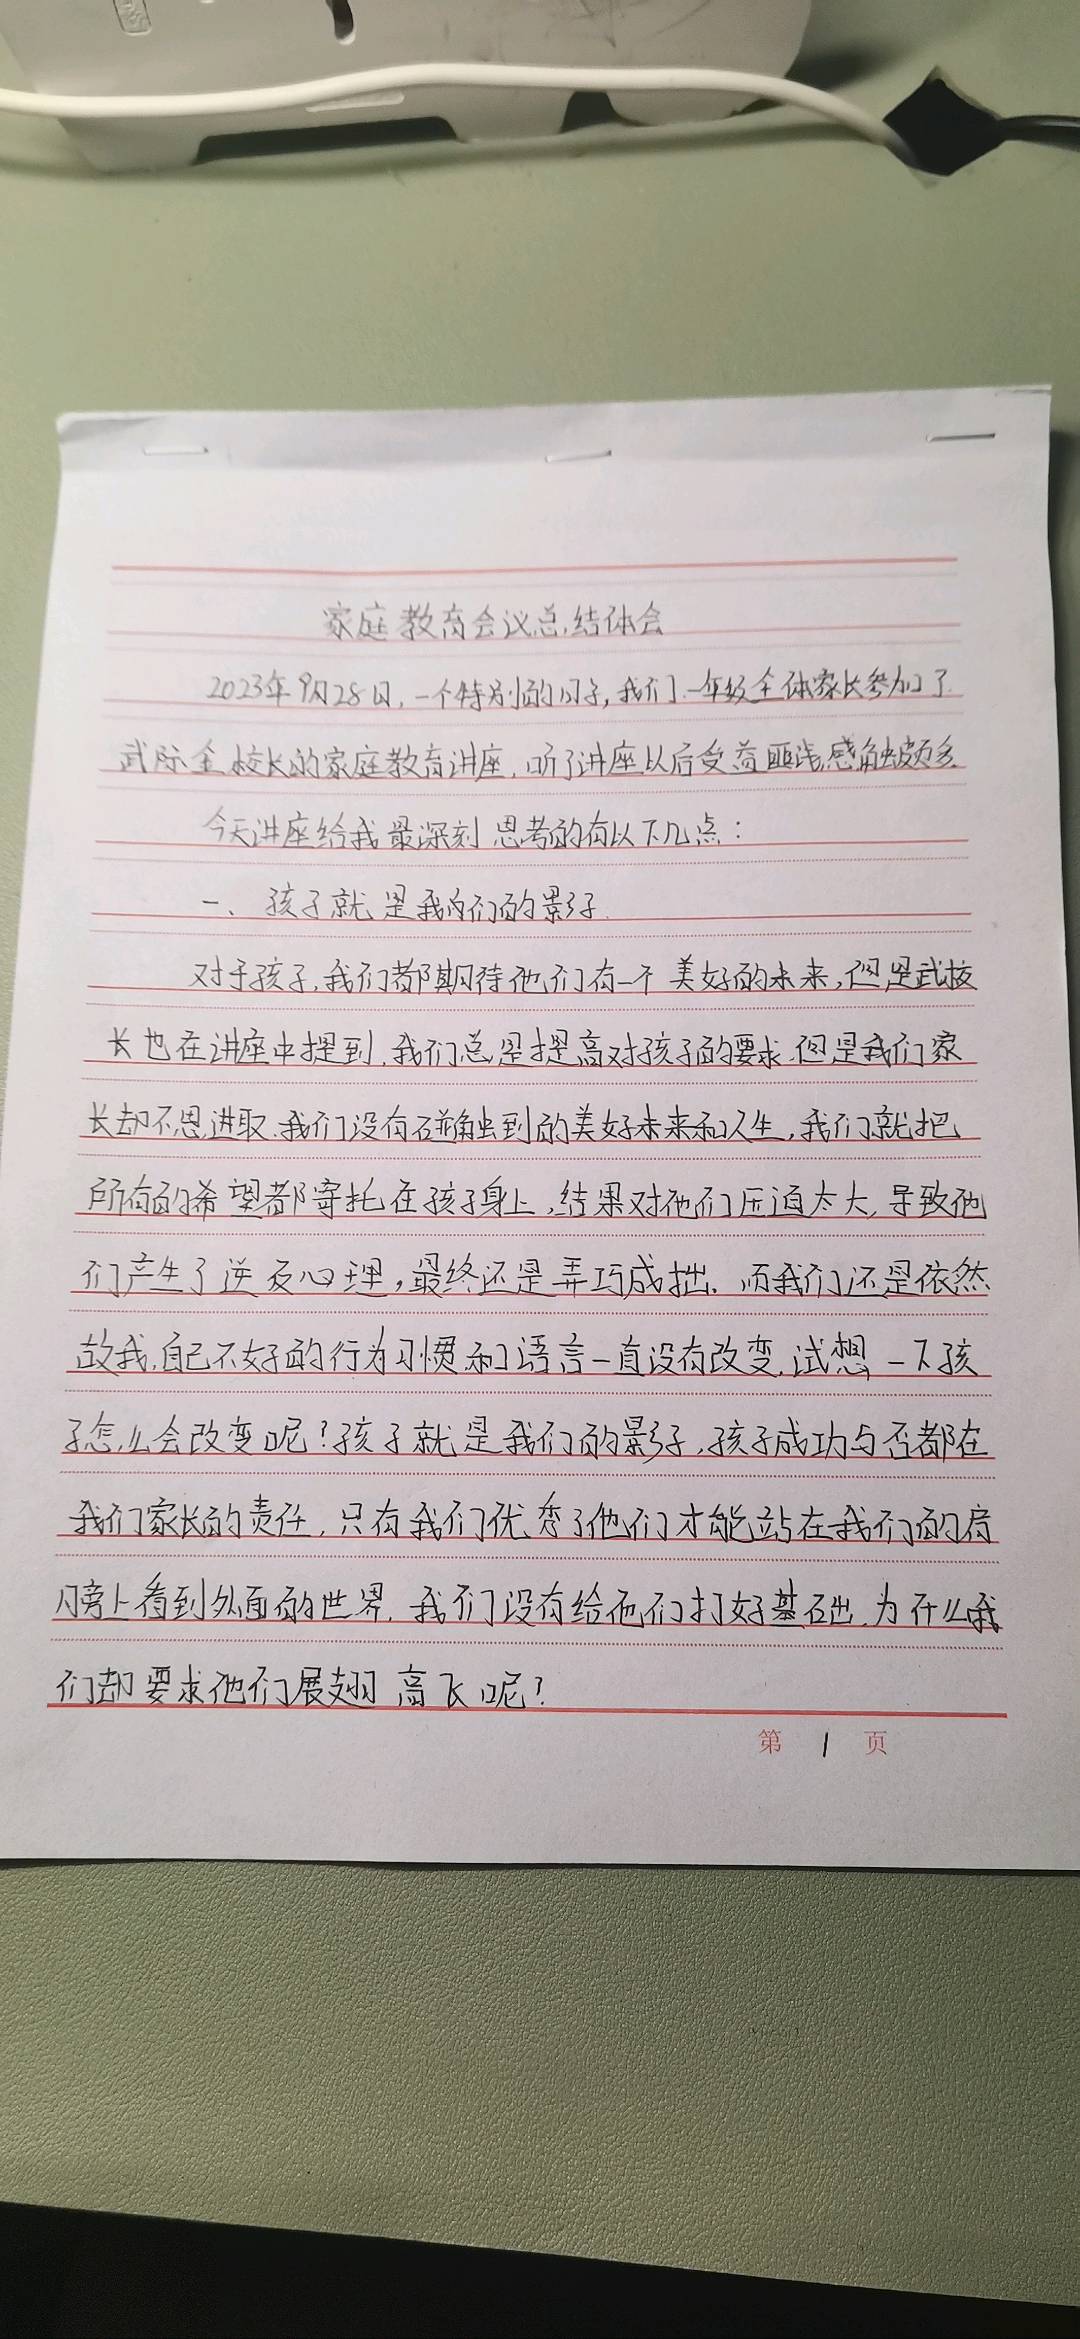 家庭教育会议总结体会
2023年9月28日,一个特别的日子,我们一年级全体家长参加了
武际金校长的家庭教育讲座,听了讲座以后受益匪浅,感触颇多.
今天讲座给我最深刻思考的有以下几点:
一、孩子就是我们的影子.
对于孩子,我们都期待他们有一个美好的未来,但是武校
长也在讲座中提到,我们总是提高对孩子的要求,但是我们家
长却不思进取.我们没有碰触到的美好未来和人生,我们就把
所有的希望都寄托在孩子身上,结果对他们压迫太大,导致他
们产生了逆反心理,最终还是弄巧成拙.而我们还是依然
故我,自己不好的行为习惯和语言一直没有改变,试想一下孩
子怎么会改变呢?孩子就是我们的影子,孩子成功与否都在
我们家长的责任,只有我们优秀了他们才能站在我们的肩
膀上看到外面的世界.我们没有给他们打好基础,为什么我
们却要求他们展翅高飞呢?
第 1 页